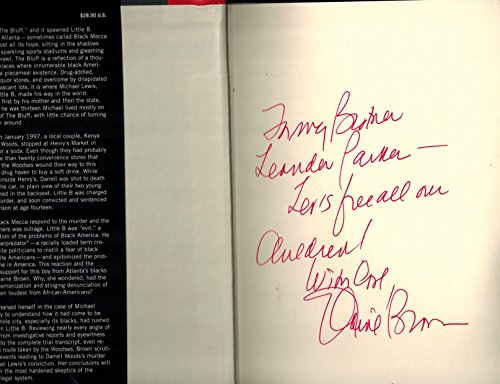 $28.50 U.S.
The Bluff," and it spawned Little B.
Atlanta—sometimes called Black Mecca
ost all its hope, sitting in the shadows
sparkling sports stadiums and gleaming
rawl, The Bluff is a reflection of a thou-
places where innumerable black Ameri-
a piecemeal existence. Drug-addled,
iquor stores, and overcome by dilapidated
vacant lots, it is where Michael Lewis,
ttle B, made his way in the world.
first by his mother and then the state,
he was thirteen Michael lived mostly on
of The Bluff, with little chance of turning
n around.
n January 1997, a local couple, Kenya
Woods, stopped at Henry's Market in
for a soda. Even though they had probably
e than twenty convenience stores that
the Woodses wound their way to this
drug haven to buy a soft drink. While
inside Henry's, Darrell was shot to death
the car, in plain view of their two young
ned in the backseat. Little B was charged
urder, and soon convicted and sentenced
rison at age fourteen.
lack Mecca respond to the murder and the
here was outrage. Little B was "evil," a
tion of the problems of Black America. He
erpredator"—a racially loaded term cre-
ite politicians to instill a fear of black
ite Americans—and epitomized the prob-
me in America. This reaction and the
support for this boy from Atlanta's blacks
laine Brown. Why, she wondered, had the
emonization and stinging denunciation of
en loudest from African-Americans?
mersed herself in the case of Michael
y to understand how it had come to be
hole city, especially its blacks, had rushed
n Little B. Reviewing nearly every angle of
from investigative reports and eyewitness
to the complete trial transcript, even re-
route taken by the Woodses, Brown scruti-
events leading to Darrell Woods's murder
Lewis's conviction. Her conclusions will
the most hardened skeptics of the
legal system.
For my Brother
Leander Parker—
Let's free all our
children!
With love,
Elaine Brown